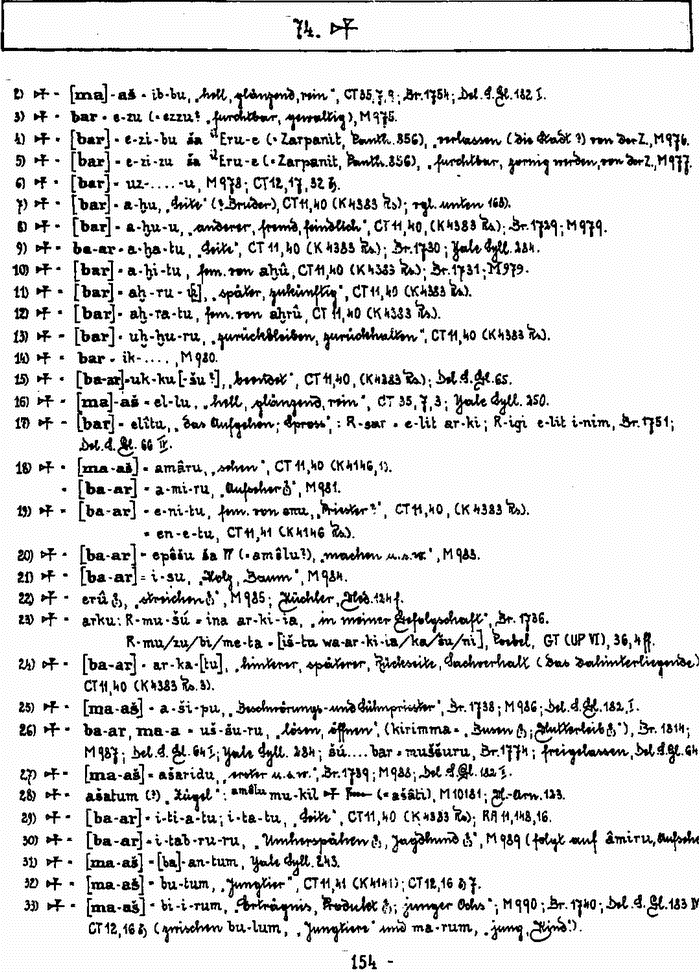 74. 𒁇
2) 𒁇 = [ma]-aš = ib-bu, „hell, glänzend, rein", CT 35,7,9; Br. 1754; Del. S. Gl. 182 I.
3) 𒁇 = bar = e-zu (= ezzu? „furchtbar, gewaltig), M 975.
4) 𒁇 = [bar] = e-zi-bu ša ⁱˡEru-e (= Zarpanit, Panth. 856), „verlassen (die Stadt?) von der Z., M 976.
5) 𒁇 = [bar] = e-zi-zu ša ⁱˡEru-e (= Zarpanit, Panth. 856), „furchtbar, zornig werden, von der Z., M 977.
6) 𒁇 = [bar] = uz-....-u, M 978; CT 12,17,32 b.
7) 𒁇 = [bar] = a-ḫu, „Seite" (? Bruder), CT 11,40 (K 4383 Rs.); vgl. unten 168).
8) 𒁇 = [bar] = a-ḫu-u, „anderer, fremd, feindlich", CT 11,40, (K 4383 Rs.); Br. 1729; M 979.
9) 𒁇 = ba-ar = a-ḫa-tu, „Seite", CT 11,40 (K 4383 Rs.); Br. 1730; Yale Syll. 284.
10) 𒁇 = [bar] = a-ḫi-tu, fem. von aḫû, CT 11,40 (K 4383 Rs.); Br. 1731; M 979.
11) 𒁇 = [bar] = aḫ-ru-[ú], „später, zukünftig", CT 11,40 (K 4383 Rs.).
12) 𒁇 = [bar] = aḫ-ra-tu, fem. von aḫrû, CT 11,40 (K 4383 Rs.).
13) 𒁇 = [bar] = uḫ-ḫu-ru, „zurückbleiben, zurückhalten", CT 11,40 (K 4383 Rs.).
14) 𒁇 = bar = ik-...., M 980.
15) 𒁇 = [ba-ar] = uk-ku [-šu?], „beendet", CT 11,40, (K 4383 Rs.); Del. S. Gl. 65.
16) 𒁇 = [ma]-aš = el-lu, „hell, glänzend, rein", CT 35,7,3; Yale Syll. 250.
17) 𒁇 = [bar] = elîtu, „das Aufgehen; Spross",: R-sar = e-lit ar-ki; R-igi e-lit i-nim, Br. 1751;
Del. S. Gl. 66 II.
18) 𒁇 = [ma-aš] = amâru, „sehen", CT 11,40 (K 4146,1).
= [ba-ar] = a-mi-ru, „Aufseher?", M 981.
19) 𒁇 = [ba-ar] = e-ni-tu, fem. von enu, „Priester?", CT 11,40, (K 4383 Rs.).
= en-e-tu, CT 11,41 (K 4146 Rs.).
20) 𒁇 = [ba-ar] = epêšu ša (= amêlu?), „machen u.s.w.", M 983.
21) 𒁇 = [ba-ar] = i-ṣu, „Holz, Baum", M 984.
22) 𒁇 = erû?, „streichen?", M 985; Küchler, Med. 124 f.
23) 𒁇 = arku: R-mu-šú = ina ar-ki-ia, „in meiner Gefolgschaft", Br. 1736.
R-mu/zu/bi/me-ta = [iš-tu wa-ar-ki-ia/ka/šu/ni], Poebel, GT (UP VI), 36,4 ff.
24) 𒁇 = [ba-ar] = ar-ka-[tu], „hinterer, späterer, Rückseite, Sachverhalt (das dahinterliegende)
CT 11,40 (K 4383 Rs. 3).
25) 𒁇 = [ma-aš] = a-ši-pu, „Beschwörungs- und Sühnpriester", Br. 1738; M 986; Del. S. Gl. 182 I.
26) 𒁇 = ba-ar, ma-a = uš-šu-ru, „lösen, öffnen", (kirimma = „Busen?; Mutterleib?"), Br. 1814;
M 987; Del. S. Gl. 64 I; Yale Syll. 284; šú....bar = muššuru, Br. 1774; freigelassen, Del. S. Gl. 64
27) 𒁇 = [ma-aš] = ašaridu, „erster u.s.w.", Br. 1739; M 988; Del. S. Gl. 182 I.
28) 𒁇 = ašatum (?) „Zügel": ᵃᵐêˡᵘ mu-kil (= ašâti), M 10181; El-Arn. 123.
29) 𒁇 = [ba-ar] = i-ti-a-tu; i-ta-tu, „Seite", CT 11,40 (K 4383 Rs); RA 11,148,16.
30) 𒁇 = [ba-ar] = i-tab-ru-ru, „Umherspähen?, Jagdhund?", M 989 (folgt auf âmiru, Aufseher
31) 𒁇 = [ma-aš] = [ba]-an-tum, Yale Syll. 243.
32) 𒁇 = [ma-aš] = bu-tum, „Jungtier", CT 11,41 (K 4141); CT 12,16 b 7.
33) 𒁇 = [ma-aš] = bi-i-rum, „Erträgnis, Produkt?; junger Ochs"; M 990; Br. 1740; Del. S. Gl. 183 IV
CT 12,16 b (zwischen bu-lum, „Jungtiere" und ma-rum, „jung, Kind").
154 -